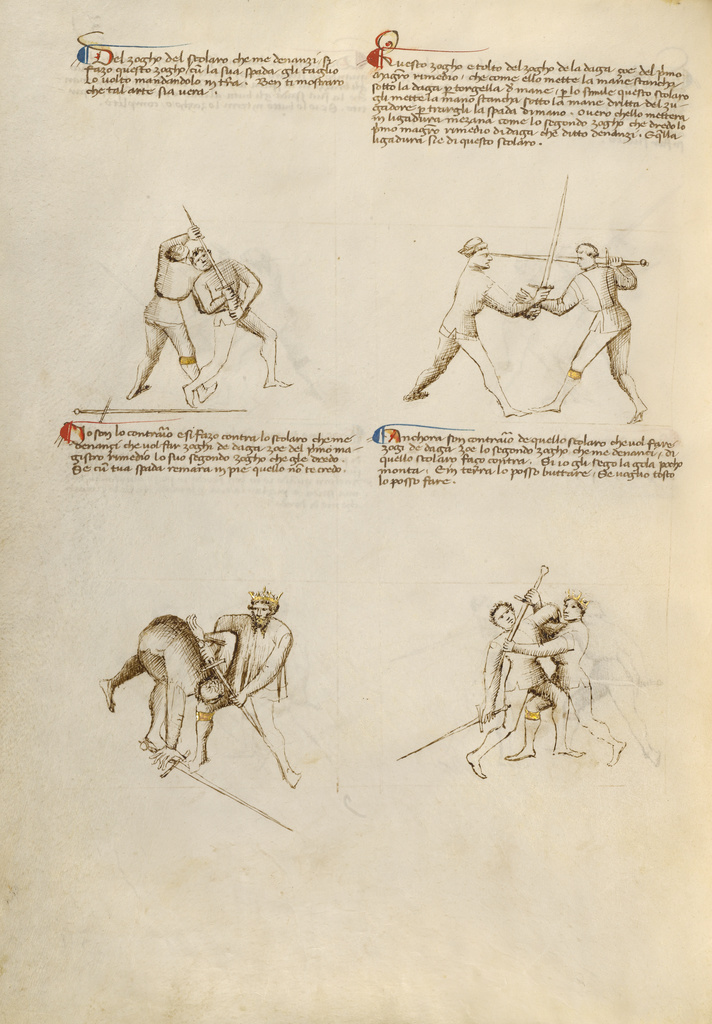 Del zogho del scolaro che me denanzi si
fazo questo zogho cu la sua spada gli taglio
Lo volto mandandolo in tra. Ben ti mostraro
che tal arte sia vera.
Questo zogho e tolto del zogho de la daga zoe del pmo
magro rimedio, che come ello mette la mane stancha
sotto la daga p torgella d mane, p lo simile questo scolaro
gli mette la mano stancha sotto la mane dritta del zu
gadore p trargli la spada di mano. Overo chello mettera
in ligadura mezana come lo segondo zogho che dredo lo
pmo magro rimedio di daga che ditto denanzi. E quella
ligadura sie di questo scolaro.
Io son lo contrario e si fazo contra lo scolaro che me
denanci che vol far zoghi de daga zoe del pmo ma
gistro rimedio lo suo segondo zogho che gle dredo.
Se cu tua spada remara in pie quello no te credo.
Anchora son contrario de quello scolaro che vol fare
zogi de daga zoe lo segondo zogho che me denanci, di
quello scolaro faço contra. Si io gli sego la gola pocho
monta. E in terra lo posso buttare, Se voglio tosto
lo posso fare.